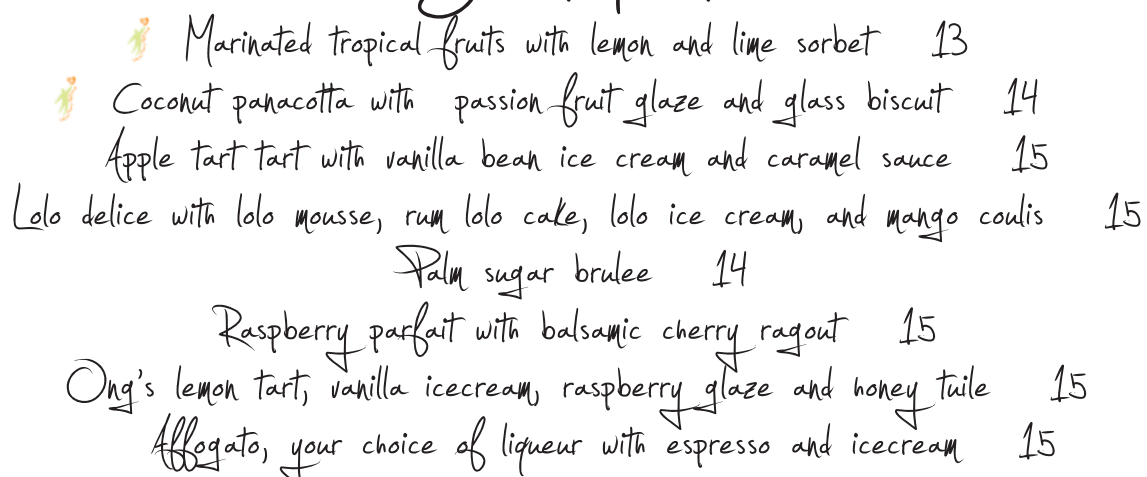 Marinated tropical fruits with lemon and lime sorbet 13
Coconut panacotta with passion fruit glaze and glass biscuit 14
Apple tart tart with vanilla bean ice cream and caramel sauce 15
Lolo delice with lolo mousse, rum lolo cake, lolo ice cream, and mango coulis 15
Palm sugar brulee 14
Raspberry parfait with balsamic cherry ragout 15
Ong's lemon tart, vanilla icecream, raspberry glaze and honey tuile 15
Affogato, your choice of liqueur with espresso and icecream 15